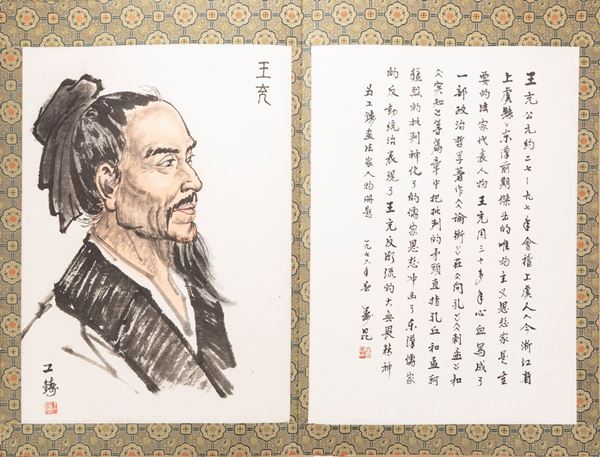 王充
工鑄
王充公元约二七—九七年會稽上虞人《今浙江省
上虞縣》东漢前期傑出的唯物主义思想家是重
要的法家代表人物王充用三十多年心血写成了
一部政治哲学著作《论衡》在《问孔》《刺孟》和
《实知》等篇章中把批判的矛头直指孔丘和孟轲
猛烈的批判神化了的儒家思想冲击了东漢儒家
的反动统治表现了王充反潮流的大无畏精神
为工鑄画法家人物册题 一九七六年春 萧昆